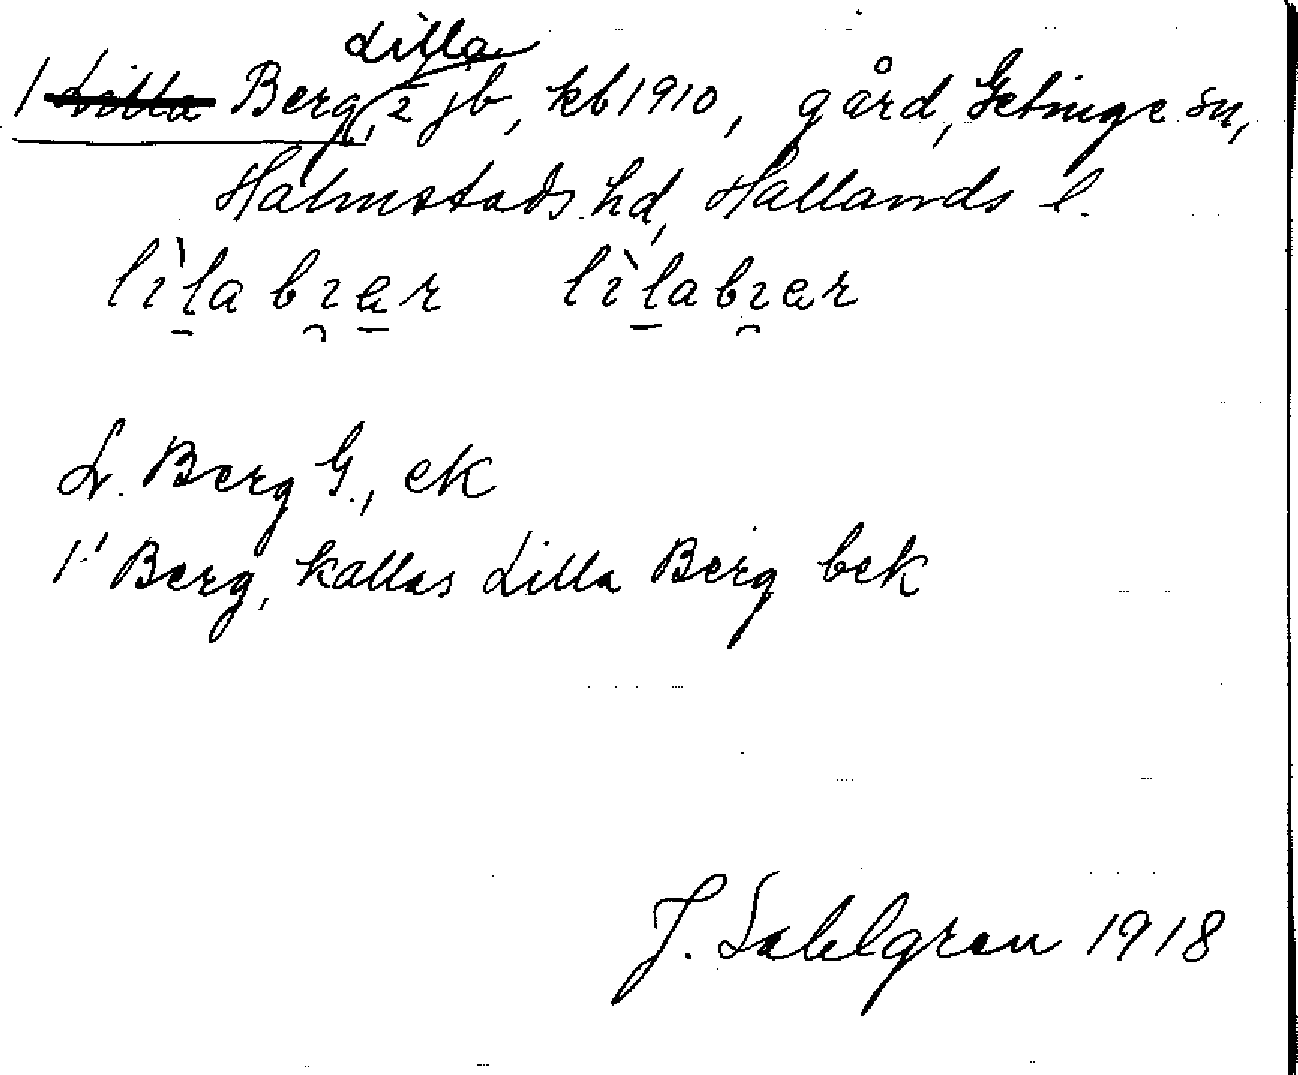 Lilla
1 Lilla Berg, 2 jb, kb 1910, gård, Getinge sn,
Halmstads hd, Hallands l.
lìlabɪær lìlabɪær
L. Berg G., ek
1' Berg, kallas Lilla Berg bek
J. Sahlgren 1918